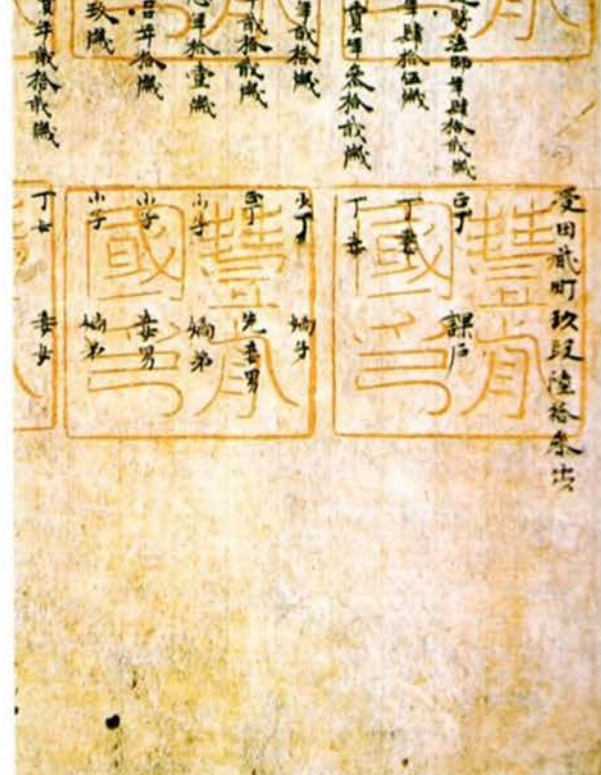 受田貳町玖段陸拾参歩
法師年肆拾貳歳 正丁 課戸
年肆拾伍歳 丁妻
賣年参拾貳歳 丁妾
年貳拾歳 少丁 嫡子
年貳拾貳歳 正丁 先妾男
年拾壹歳 小子 嫡弟
年拾歳 小子 妾男
玖歳 小子 嫡弟
賣年貳拾貳歳 丁女 妾女
豐前
國印
豐前
國印